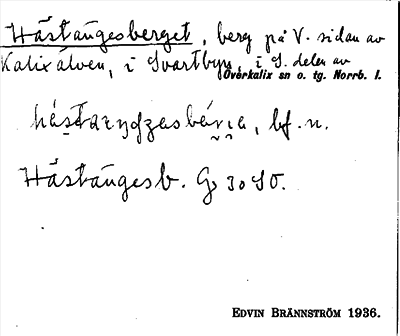 Hästängesberget, berg på V. sidan av
Kalixälven, i Svartbyn, i S. delen av
Överkalix sn o. tg. Norrb. l.
bf. n.
Hästängesb. G 30 SO.
EDVIN BRÄNNSTRÖM 1936.